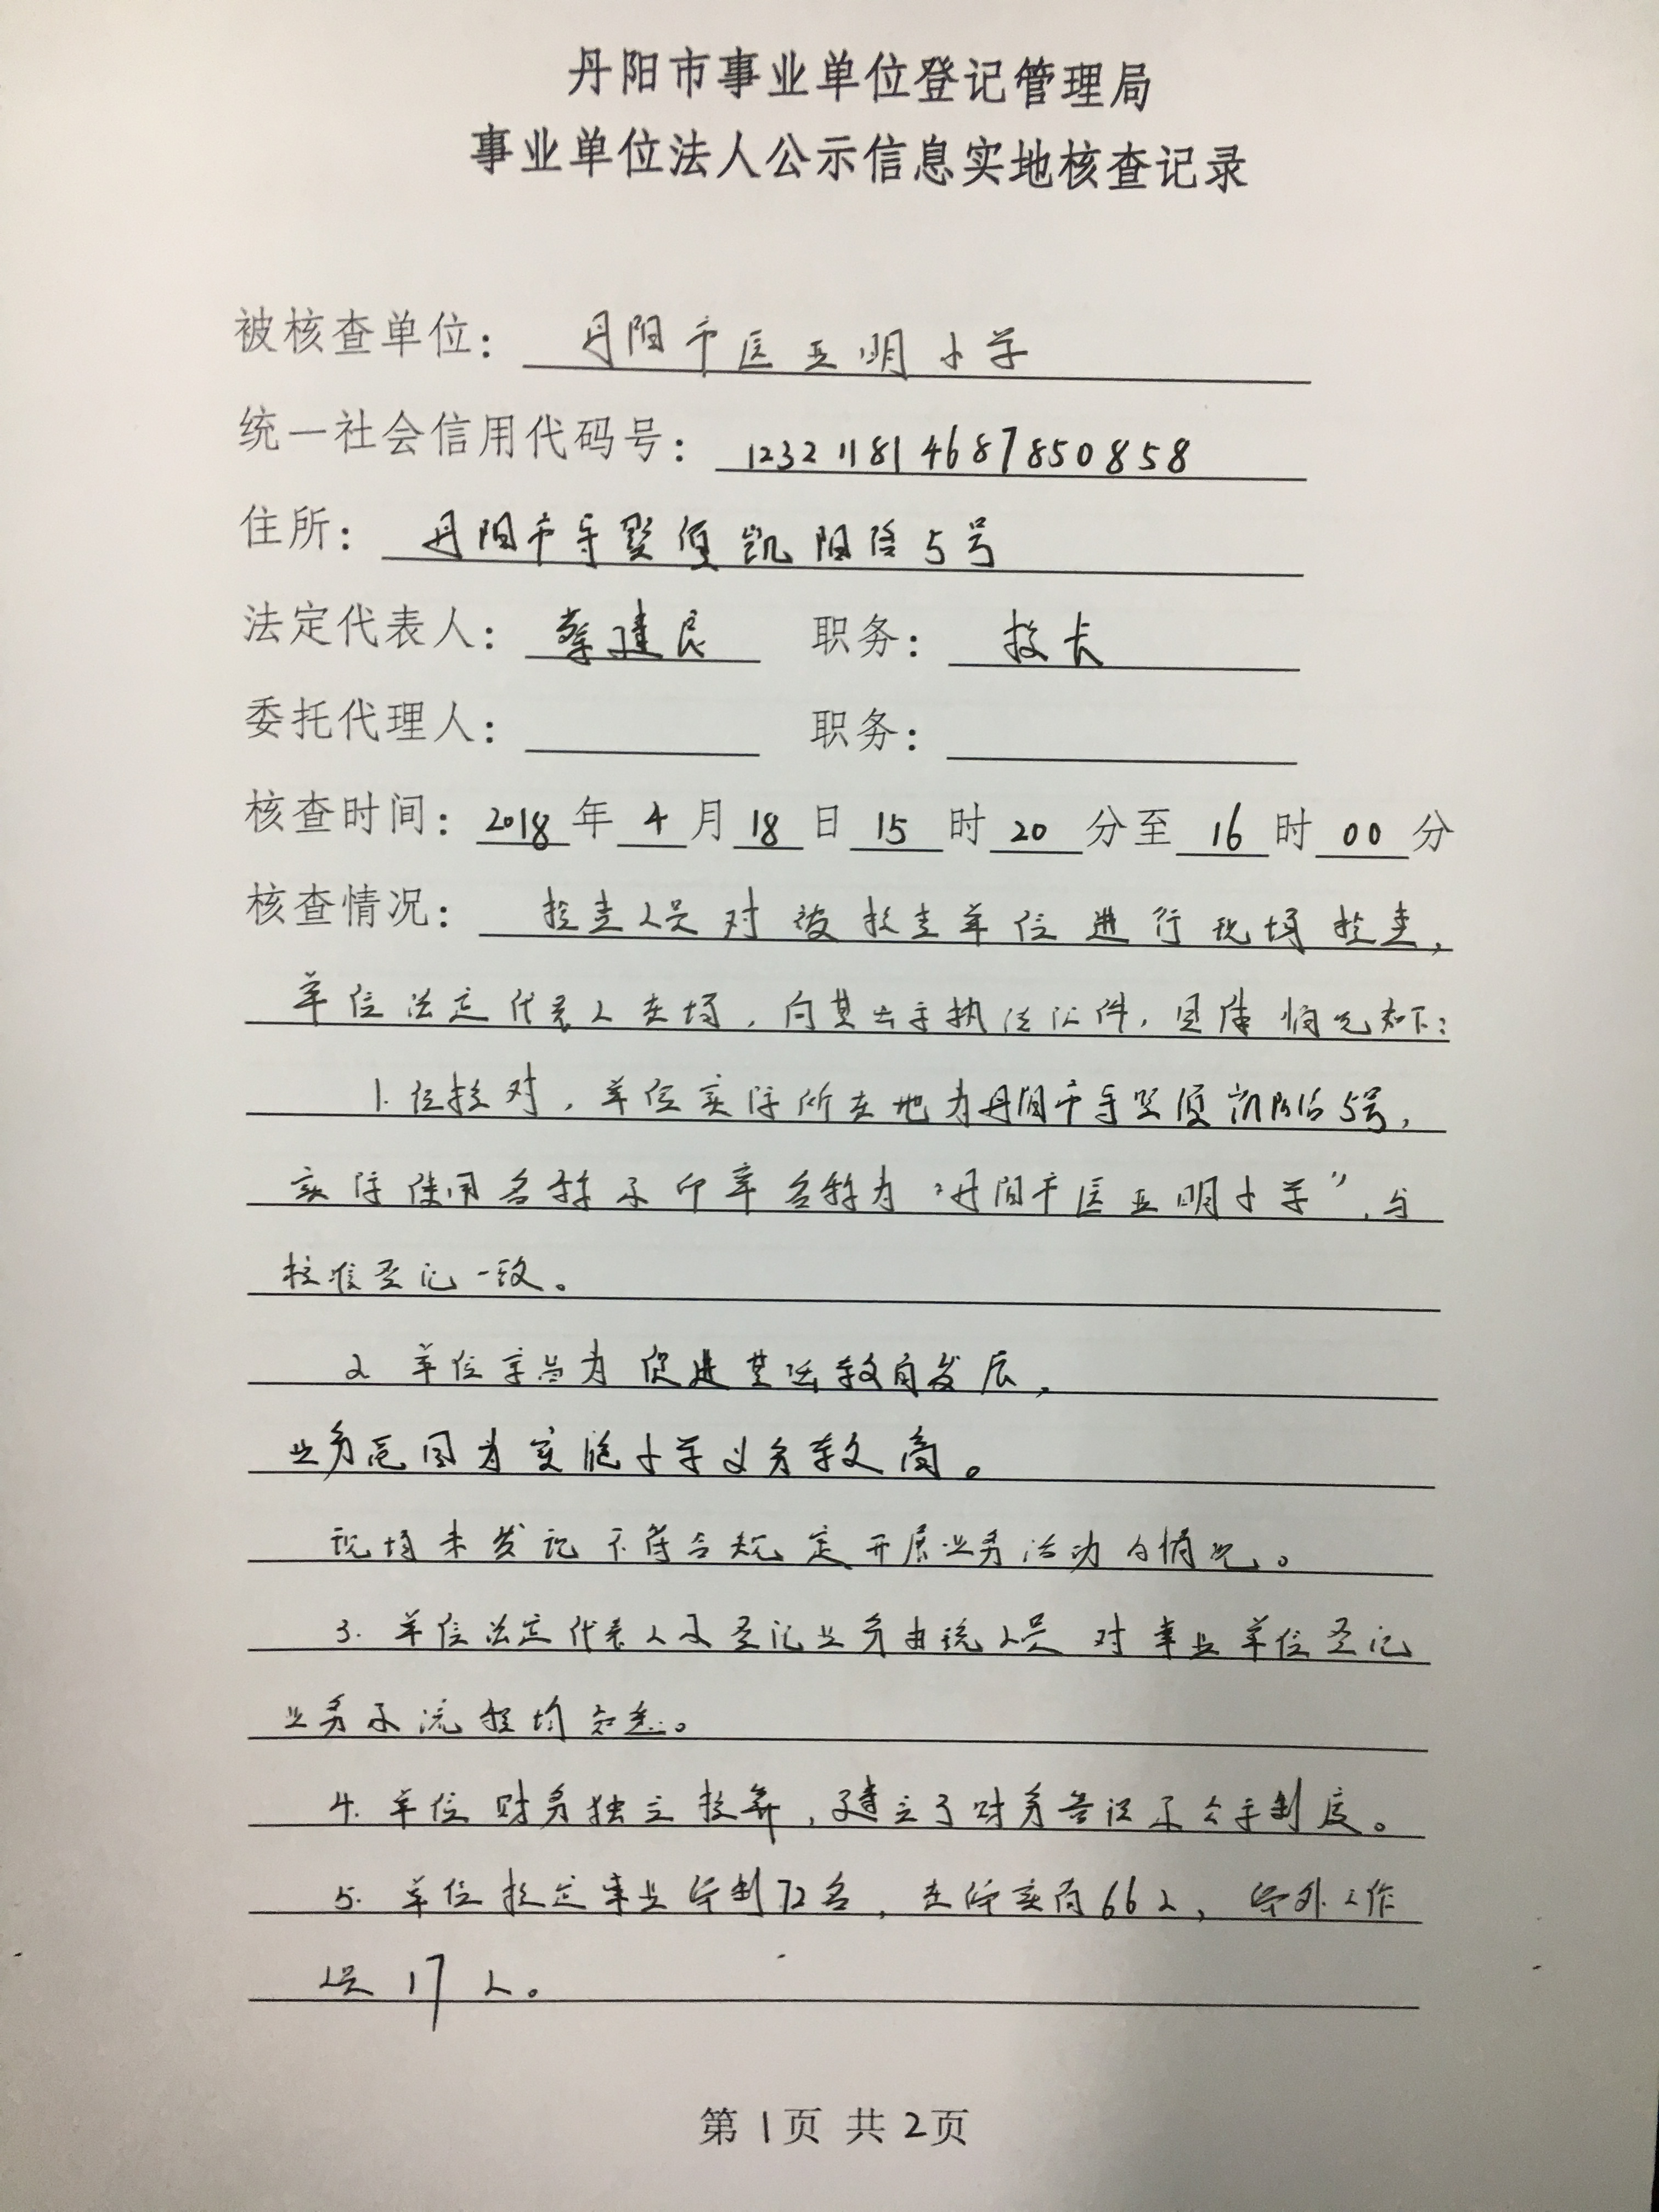 丹阳市事业单位登记管理局
事业单位法人公示信息实地核查记录
被核查单位： 丹阳市匡亚明小学
统一社会信用代码号： 123211814687850858
住所： 丹阳市导墅镇凯阳路5号
法定代表人： 蔡建良 职务： 校长
委托代理人： 职务：
核查时间： 2018 年 4 月 18 日 15 时 20 分至 16 时 00 分
核查情况： 检查人员对被检查单位进行现场检查，
单位法定代表人在场，向其出示执法证件，具体情况如下：
1. 经核对，单位实际所在地为丹阳市导墅镇凯阳路5号，
实际使用名称及印章名称为“丹阳市匡亚明小学”，与
核准登记一致。
2 单位宗旨为促进基础教育发展，
业务范围为实施小学义务教育。
现场未发现不符合规定开展业务活动的情况。
3. 单位法定代表人及登记业务经办人员对事业单位登记
业务及流程均知悉。
4. 单位财务独立核算，建立了财务管理及公示制度。
5. 单位核定事业编制72名，在编实有66人，编外工作
人员 17 人。
第 1 页 共 2 页